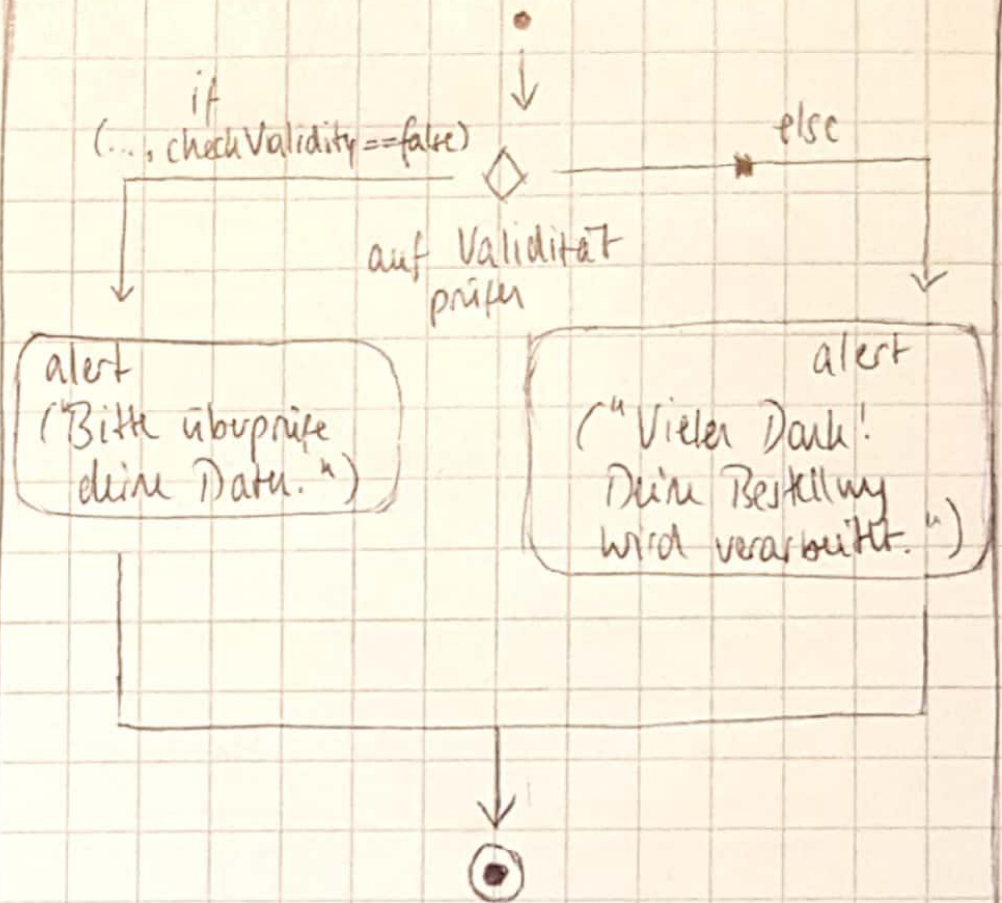 if
(..., checkValidity==false)
else
auf Validität
prüfen
alert
("Bitte überprüfe
deine Daten.")
alert
("Vielen Dank!
Deine Bestellung
wird verarbeitet.")